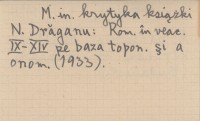 M. in. krytyka książki
N. Drăganu: Rom. în veac.
IX–XIV pe baza topon. și a
onom. (1933).